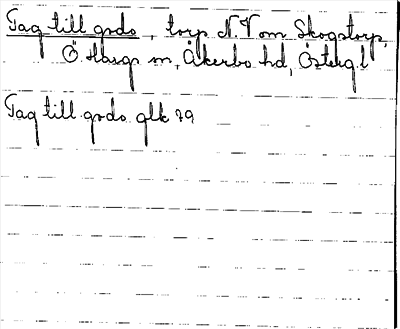 Tag till godo, torp N.V om Skogstorp,
Ö Hargs sn, Åkerbo hd, Östergl
Tag till godo glk 79